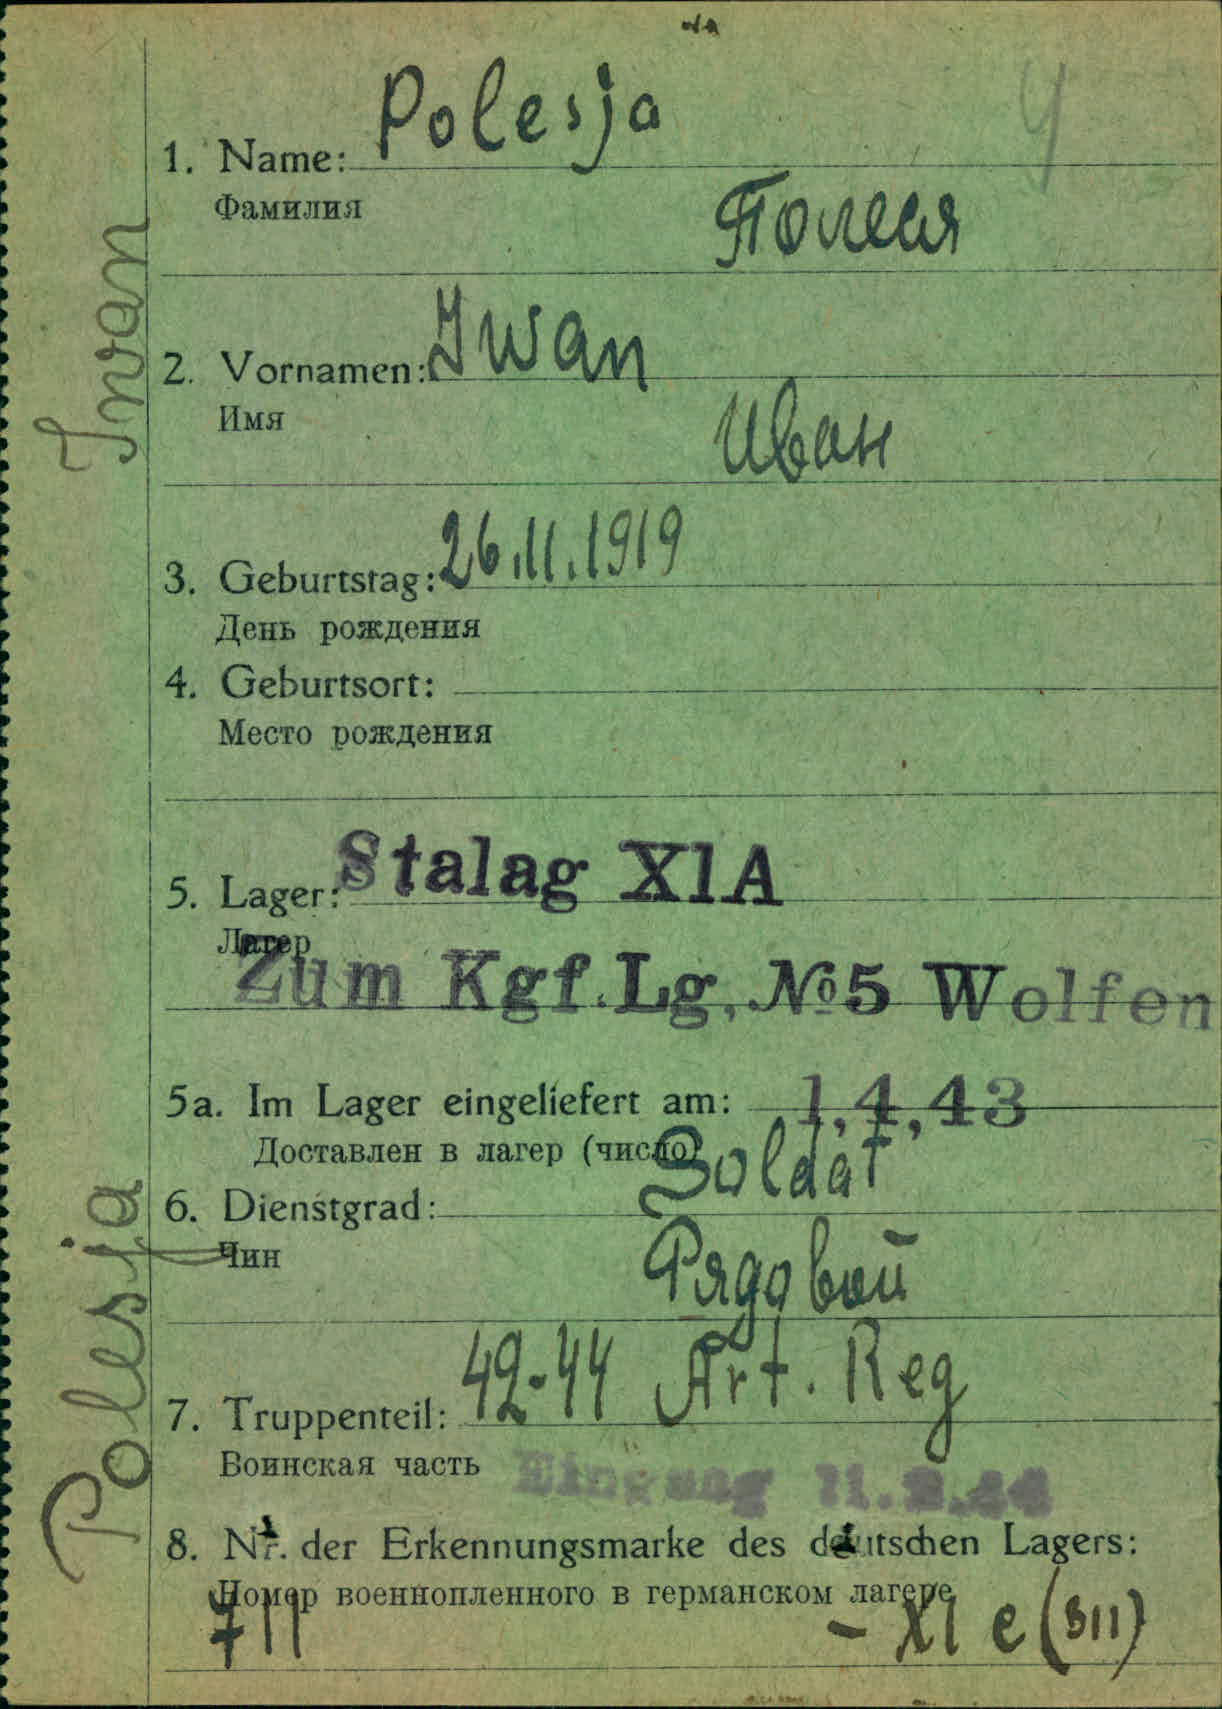 1. Name: Polesja
Фамилия
Полеся
2. Vornamen: Iwan
Имя
Иван
3. Geburtstag: 26.11.1919
День рождения
4. Geburtsort:
Место рождения
5. Lager: Stalag XIA
Лагер
Zum Kgf.Lg, №5 Wolfen
5a. Im Lager eingeliefert am: 1,4,43
Доставлен в лагер (число)
Soldat
6. Dienstgrad:
Чин
Рядовой
7. Truppenteil: 42-44 Art. Reg
Воинская часть
Eingang
8. Nr. der Erkennungsmarke des deutschen Lagers:
Номер военнопленного в германском лагере
711 - XI e (311)
Polesja Iwan